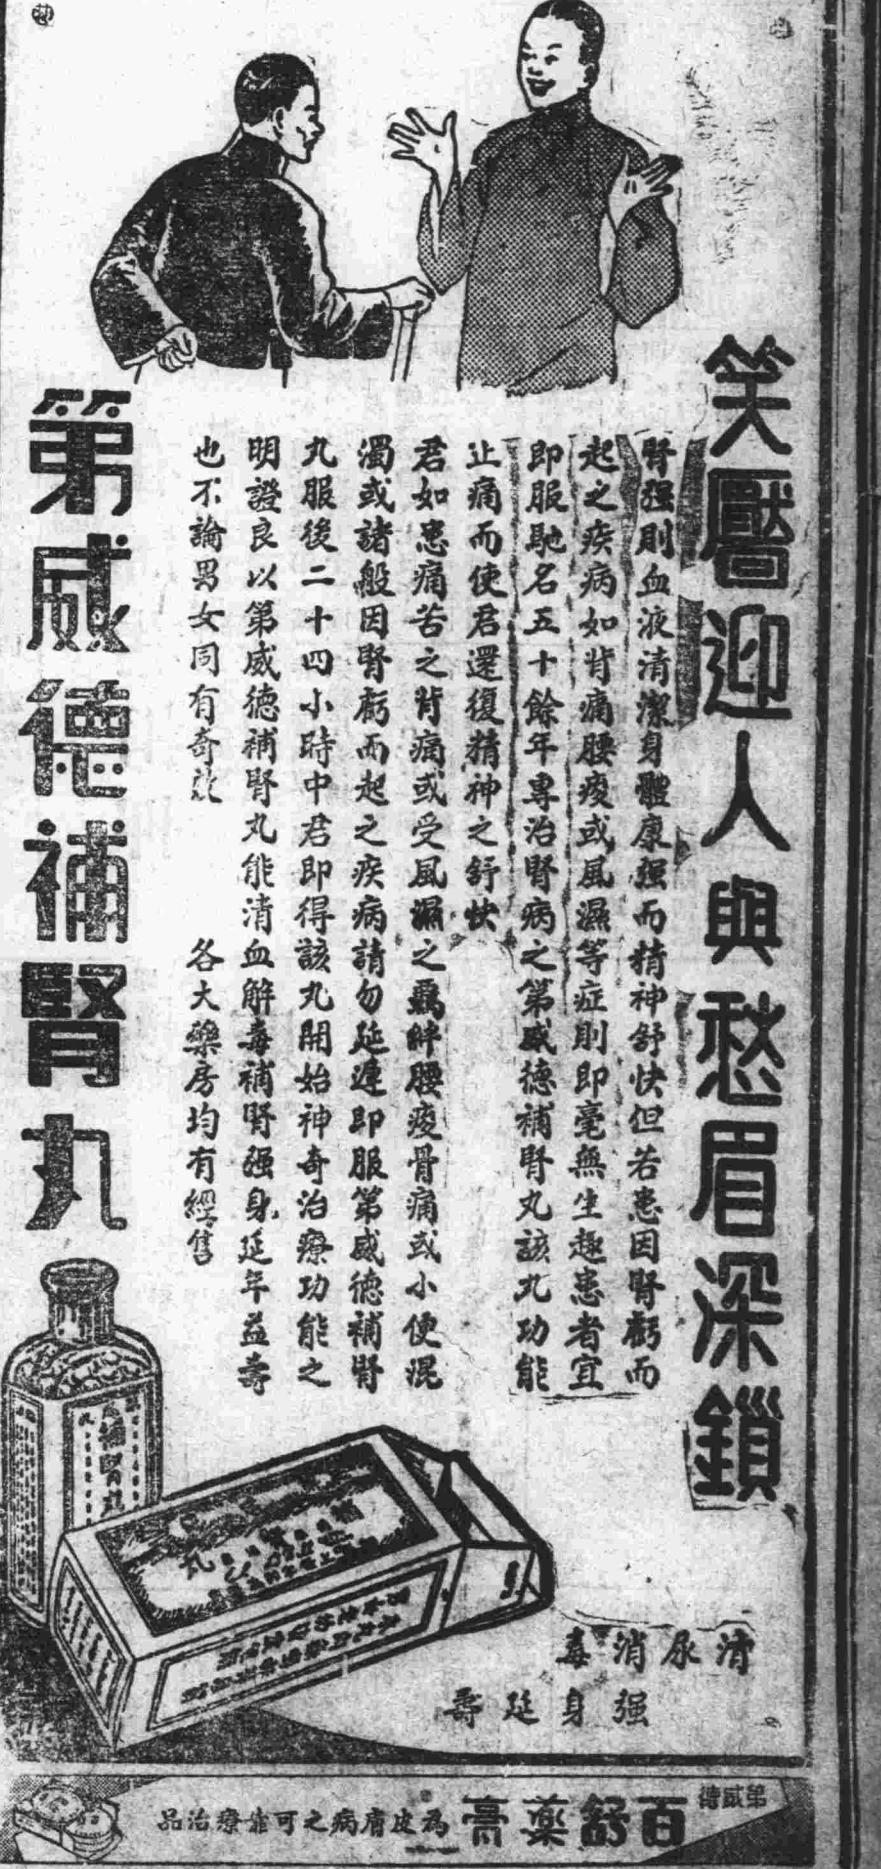 笑靨迎人與愁眉深鎖
腎强則血液清潔身體康强而精神舒快但若患因腎虧而
起之疾病如背痛腰痠或風濕等症則即毫無生趣患者宜
即服馳名五十餘年專治腎病之第威德補腎丸該丸功能
止痛而使君還復精神之舒快
君如患痛苦之背痛或受風濕之羈絆腰痠骨痛或小便混
濁或諸般因腎虧而起之疾病請勿延遲即服第威德補腎
丸服後二十四小時中君即得該丸開始神奇治療功能之
明證良以第威德補腎丸能清血解毒補腎强身延年益壽
也不論男女同有奇效
各大藥房均有經售
第威德補腎丸
補腎丸
清尿消毒
强身延壽
第威德
百舒藥膏
為皮膚病之可靠療治品